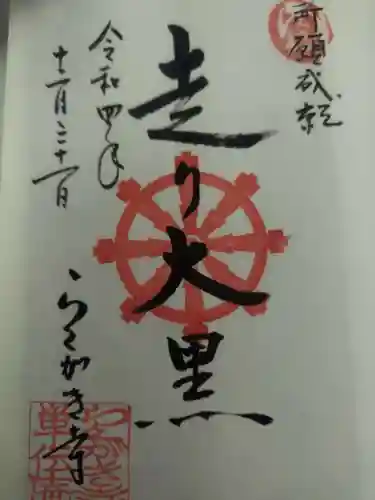 所願成就
走り大黒
令和四年
十二月三十一日
らくがき寺